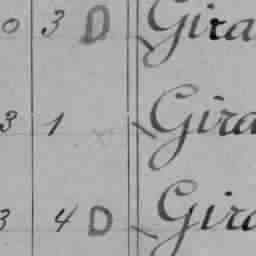 0 3 D Gira
3 1 Gira
3 4 D Gira